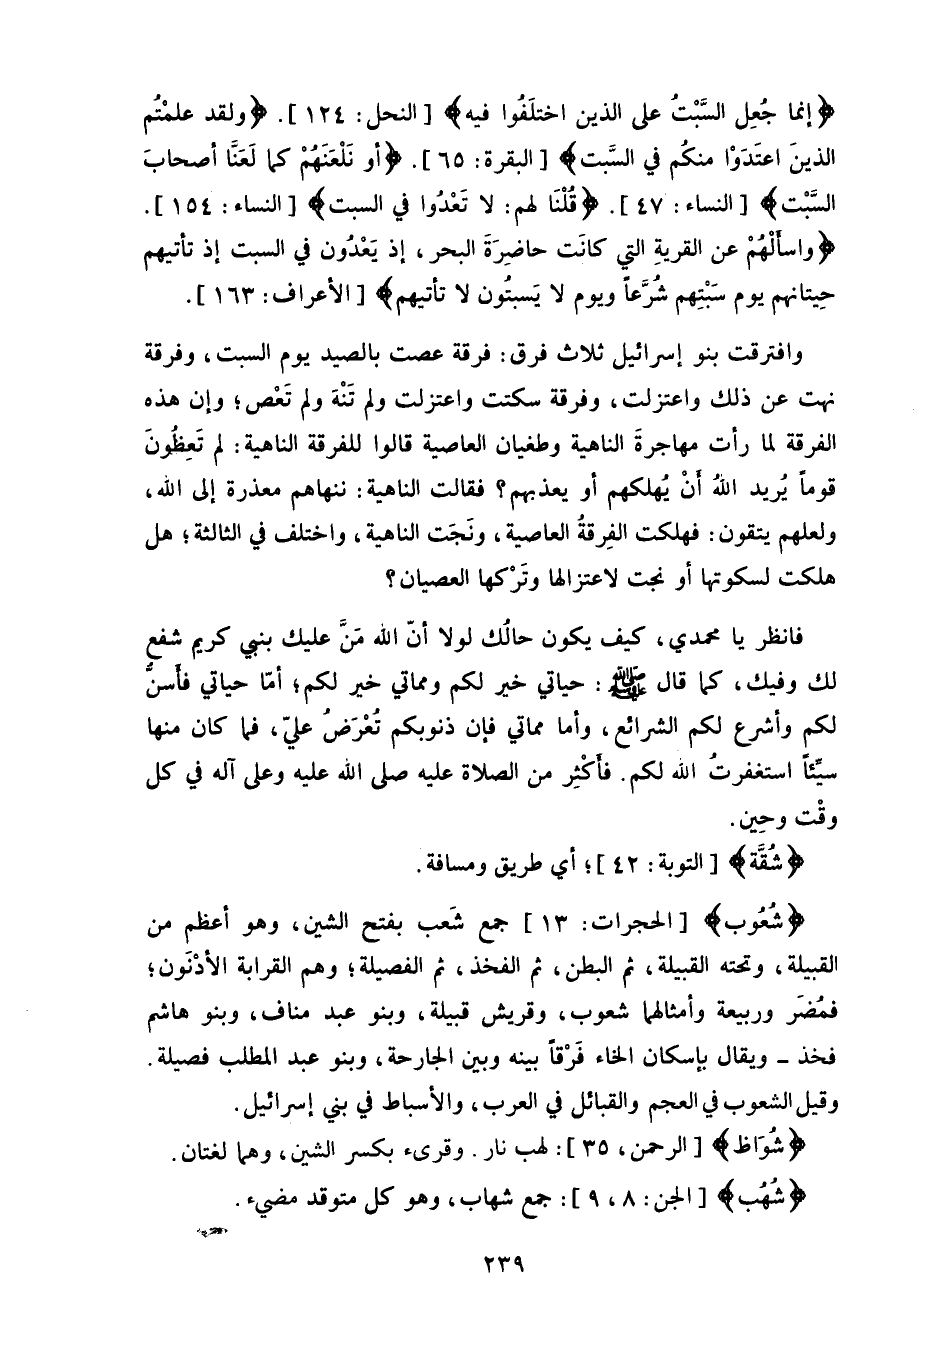 ﴿إنما جُعِل السَّبْتُ على الذين اختلَفُوا فيه﴾ [ النحل : ١٢٤ ] . ﴿ولقد علمْتُم
الذينَ اعتَدَوْا منكُم في السَّبت﴾ [ البقرة : ٦٥ ] . ﴿أو نَلْعَنَهُمْ كما لَعَنَّا أصحابَ
السَّبْت﴾ [ النساء : ٤٧ ] . ﴿قُلْنَا لهم : لا تَعْدُوا في السبت﴾ [ النساء : ١٥٤ ] .
﴿واسأَلْهُمْ عن القريةِ التي كانَت حاضِرَةَ البحر ، إذ يَعْدُون في السبت إذ تأتيهم
حِيتانهم يوم سَبْتِهم شُرَّعاً ويوم لا يَسبتُون لا تأتيهم﴾ [ الأعراف : ١٦٣ ] .
وافترقت بنو إسرائيل ثلاث فرق : فرقة عصت بالصيد يوم السبت ، وفرقة
نهت عن ذلك واعتزلت ، وفرقة سكتت واعتزلت ولم تَنْهَ ولم تَعْص ؛ وإن هذه
الفرقة لما رأت مهاجرةَ الناهية وطغيان العاصية قالوا للفرقة الناهية : لم تَعِظُونَ
قوماً يُريد اللهُ أَنْ يُهلكهم أو يعذبهم ؟ فقالت الناهية : ننهاهم معذرة إلى الله ،
ولعلهم يتقون : فهلكت الفِرقةُ العاصية ، ونَجَت الناهية ، واختلف في الثالثة ؛ هل
هلكت لسكوتها أو نجت لاعتزالها وتَرْكها العصيان ؟
فانظر يا محمدي ، كيف يكون حالُك لولا أنّ الله مَنَّ عليك بنبي كريم شفع
لك وفيك ، كما قال ﷺ : حياتي خير لكم ومماتي خير لكم ؛ أمّا حياتي فأَسنُّ
لكم وأشرع لكم الشرائع ، وأما مماتي فإن ذنوبكم تُعْرَضُ عليّ ، فما كان منها
سيِّئاً استغفرتُ الله لكم . فأَكْثِر من الصلاة عليه صلى الله عليه وعلى آله في كل
وقْت وحِين .
﴿شُقَّة﴾ [ التوبة : ٤٢ ] ؛ أي طريق ومسافة .
﴿شُعُوب﴾ [ الحجرات : ١٣ ] جمع شَعب بفتح الشين ، وهو أعظم من
القبيلة ، وتحته القبيلة ، ثم البطن ، ثم الفخذ ، ثم الفصيلة ؛ وهم القرابة الأدْنَون ؛
فمُضَر وربيعة وأمثالهما شعوب ، وقريش قبيلة ، وبنو عبد مناف ، وبنو هاشم
فخذ ــ ويقال بإسكان الخاء فَرْقاً بينه وبين الجارحة ، وبنو عبد المطلب فصيلة .
وقيل الشعوب في العجم والقبائل في العرب ، والأسباط في بني إسرائيل .
﴿شُوَاظ﴾ [ الرحمن ، ٣٥ ] : لهب نار . وقرىء بكسر الشين ، وهما لغتان .
﴿شُهُب﴾ [ الجن : ٨ ، ٩ ] : جمع شهاب ، وهو كل متوقد مضيء .
٢٣٩